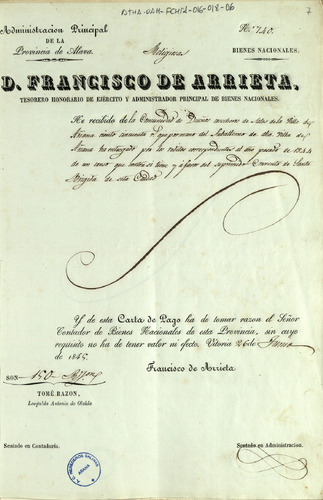 ATHA-DAH-FCHA-016-018-06
7
Administracion Principal
DE LA
Provincia de Alava.
Religiosas
N.º 740.
BIENES NACIONALES.
D. FRANCISCO DE ARRIETA,
TESORERO HONORARIO DE EJÉRCITO Y ADMINISTRADOR PRINCIPAL DE BIENES NACIONALES.
He recibido de la Comunidad de de la Villa de
Añana ciento cincuenta r.s que por mano del de dha. Villa de
Añana ha entregado por los reditos correspondientes al año pasado de 1844
de un censo que contra si tiene y á favor del suprimido Convento de Santa
Brigida de esta Ciudad
Y de esta Carta de Pago ha de tomar razon el Señor
Contador de Bienes Nacionales de esta Provincia, sin cuyo
requisito no ha de tener valor ni efecto. Vitoria 26 de Enero
de 1845.
Francisco de Arrieta
SON 150 r.s
TOMÉ RAZON,
Leopoldo Antonio de Olalde
Sentado en Contaduría.
Sentado en Administracion.
AÑANA